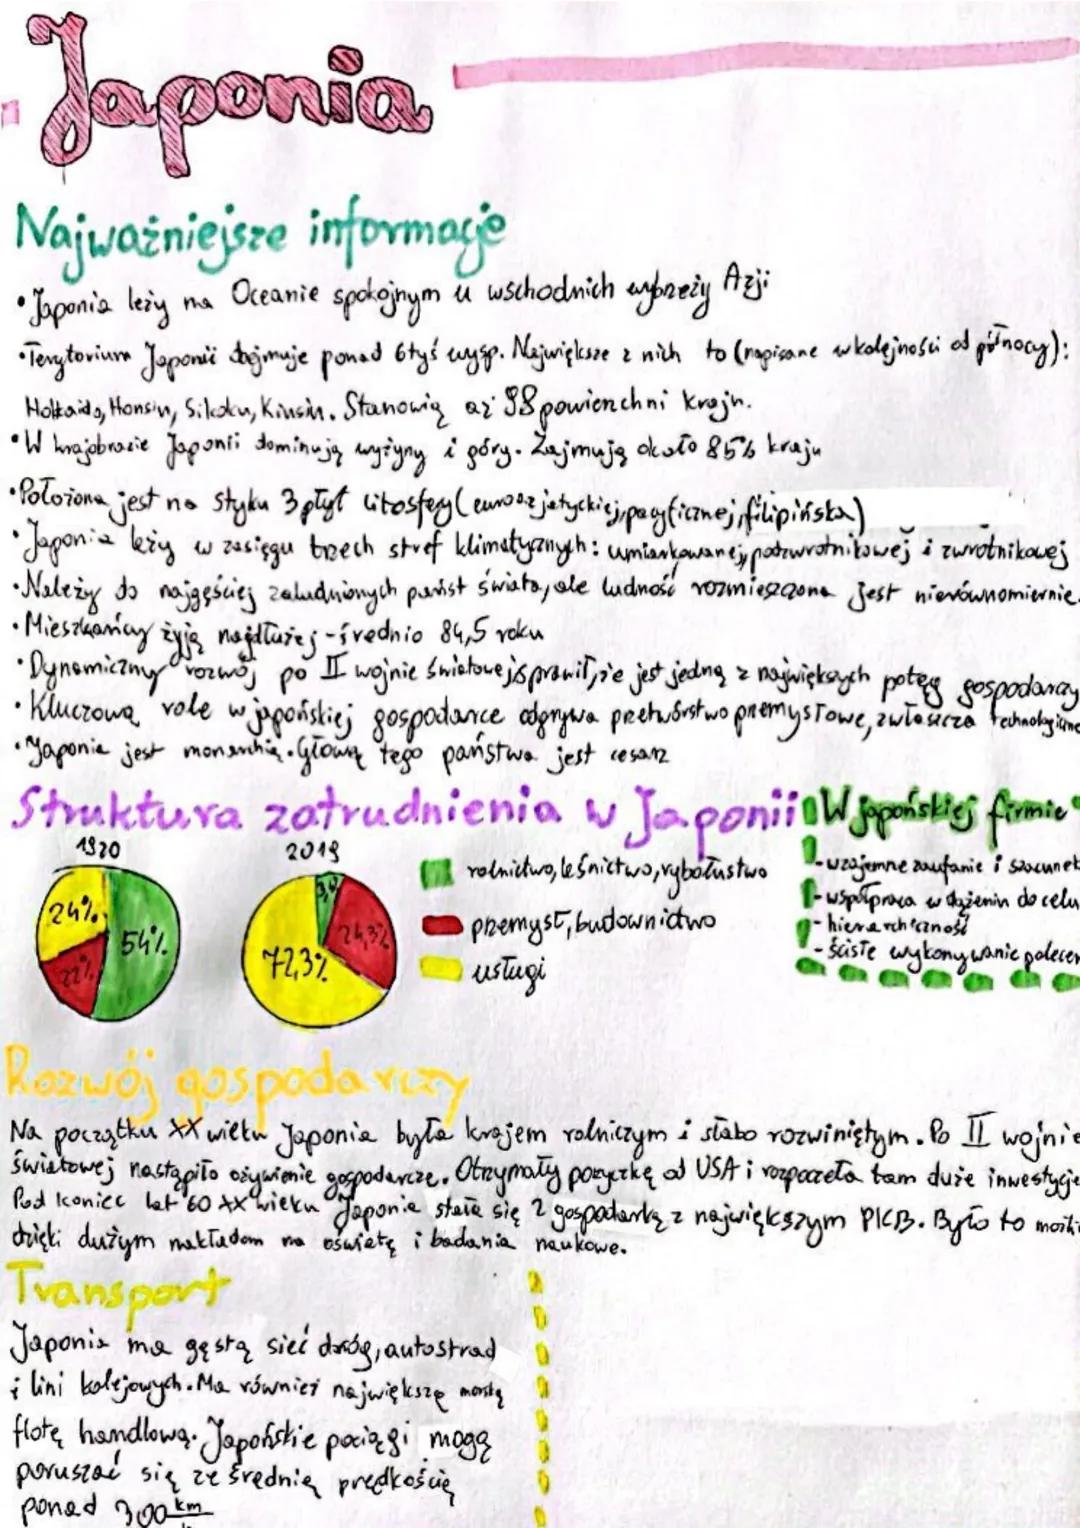 Japonia
Najważniejsze informacje
• Japonia leży na Oceanie spokojnym u wschodnich wybrzeży Azji
• Terytorium Japonii obejmuje ponad 6tyś wysp. Największe z nich to (napisane w kolejności od północy):
Hokkaido, Honsiu, Sikoku, Kiusiu. Stanowią aż 98 powierzchni kraju.
• W krajobrazie Japonii dominują wyżyny i góry. Zajmują około 85% kraju
• Położona jest na styku 3 płyt litosfery (euroazjatyckiej, pacyficznej, filipińska)
• Japonia leży w zasięgu trzech stref klimatycznych: umiarkowanej, podzwrotnikowej i zwrotnikowej
• Należy do najgęściej zaludnionych państ świata, ale ludność rozmieszczona jest nierównomiernie.
• Mieszkańcy żyją najdłużej - średnio 84,5 roku
• Dynamiczny rozwój po II wojnie światowej sprawił, że jest jedną z największych potęg gospodarczy
• Kluczową role w japońskiej gospodarce odgrywa przetwórstwo przemysłowe, zwłaszcza technologiczne
• Japonia jest monarchią. Głową tego państwa jest cesarz
Struktura zatrudnienia w Japonii
1920
24%
54%
22%
2019
3,4
24,3%
72,3%
rolnictwo, leśnictwo, rybołustwo
przemysł, budownictwo
usługi
W japońskiej firmie
- wzajemne zaufanie i szacunek
- współpraca w dążeniu do celu
- hierarchiczność
- ściste wykonywanie polecen
Rozwój gospodarczy
Na początku XX wieku Japonia była krajem rolniczym i słabo rozwiniętym. Po II wojnie
światowej nastąpiło ożywienie gospodarcze. Otrzymały pożyczkę od USA i rozpoczęła tam duże inwestycje
Pod koniec lat 60 XX wieku Japonia stała się 2 gospodarką z największym PKB. Było to możli
dzięki dużym nakładom na oświatę i badania naukowe.
Transport
Japonia ma gęstą sieć dróg, autostrad
i lini kolejowych. Ma również największą morską
flotę handlową. Japońskie pociągi mogą
poruszać się ze średnią prędkością
ponad 300 km